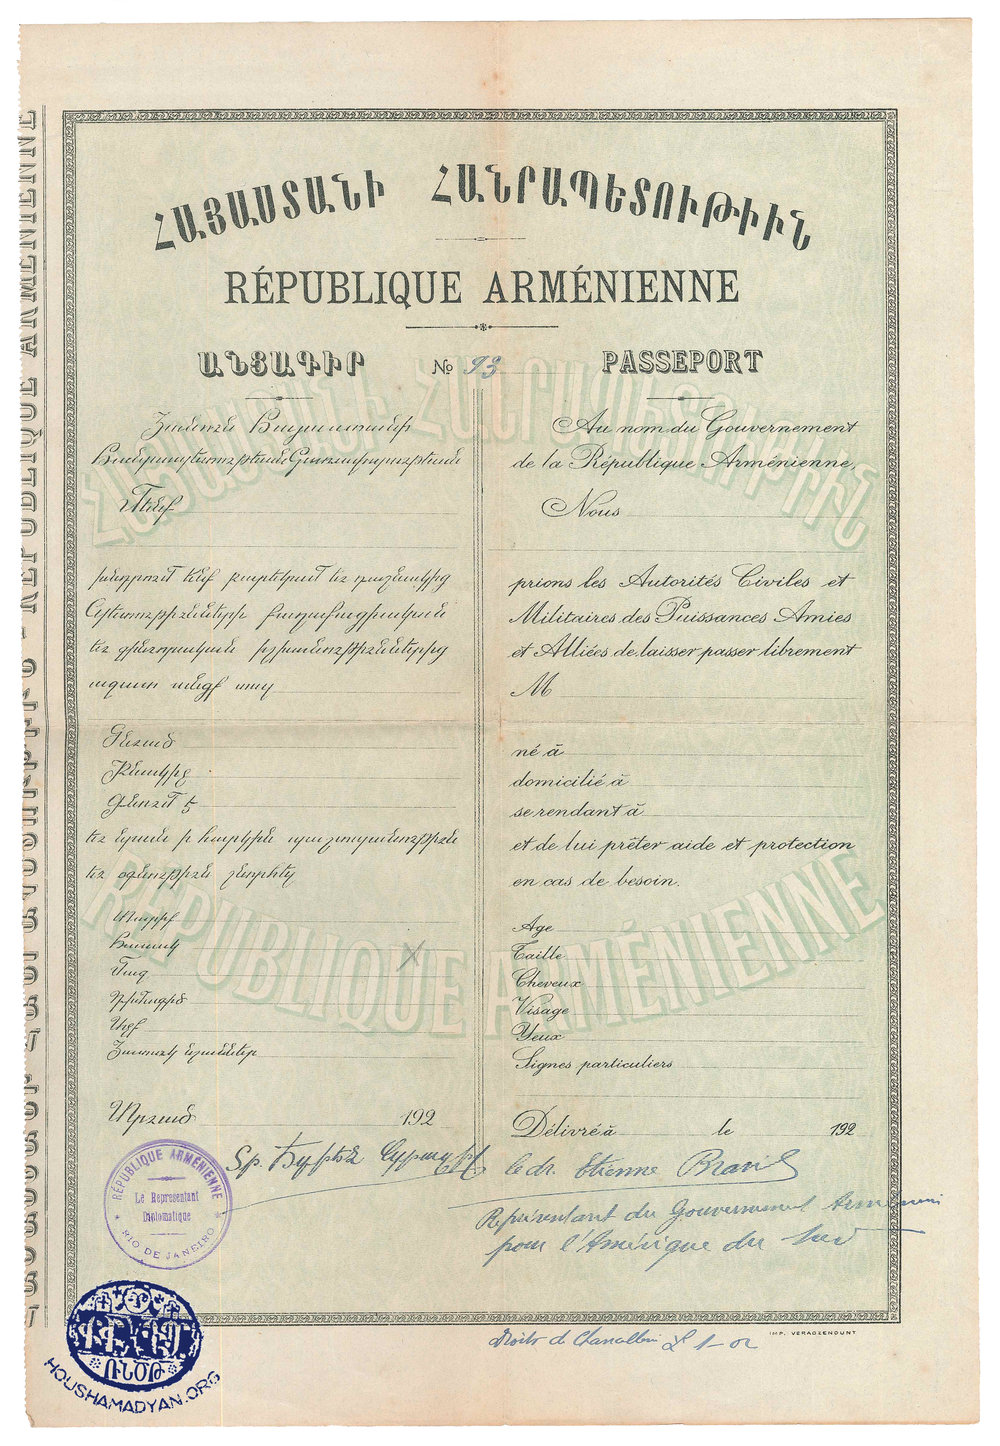 ՀԱՅԱՍՏԱՆԻ ՀԱՆՐԱՊԵՏՈՒԹԻՒՆ
RÉPUBLIQUE ARMÉNIENNE
ԱՆՑԱԳԻՐ
№ 93
PASSEPORT
Յանուն Հայաստանի
Հանրապետութեան Կառավարութեան
Մենք
խնդրում ենք բարեկամ եւ դաշնակից
Պետութիւնների քաղաքացիական
եւ զինուորական իշխանութիւններից
ազատ անցք տալ
Ծնւած
Բնակիչ
Գնում է
եւ նրան ի հարկին պաշտպանութիւն
եւ օգնութիւն շնորհել
Տարիք
Հասակ
Մազ
Դիմագիծ
Աչք
Յատուկ նշաններ
Տրւած 192
Au nom du Gouvernement
de la République Arménienne,
Nous
prions les Autorités Civiles et
Militaires des Puissances Amies
et Alliées de laisser passer librement
M
né à
domicilié à
se rendant à
et de lui prêter aide et protection
en cas de besoin.
Age
Taille
Cheveux
Visage
Yeux
Signes particuliers
Délivré à le 192
le dr. Etienne Brasil
Représentant du Gouvernement Arménien
pour l'Amérique du Sud
RÉPUBLIQUE ARMÉNIENNE
Le Representant
Diplomatique
RIO DE JANEIRO
Droits de
IMP. VERADZENOUNT
HOUSHAMADYAN.ORG
ՀԱՅԱՍՏԱՆԻ ՀԱՆՐԱՊԵՏՈՒԹԻՒՆ
RÉPUBLIQUE ARMÉNIENNE
RÉPUBLIQUE ARMÉNIENNE